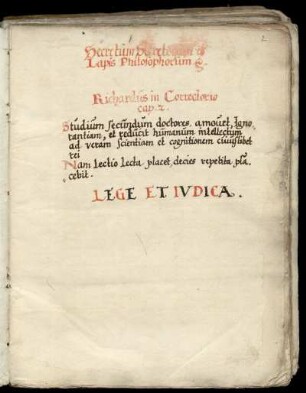 Secretum Secretorum et
Lapis Philosophorum
Richardus in Correctorio
cap. 2.
Studium secundum doctores amouet, Igno-
rantiam, et reducit humanum intellectum
ad veram scientiam et cognitionem cuiuslibet
rei
Nam Lectio Lecta placet, decies repetita pla
cebit.
LEGE ET IVDICA.